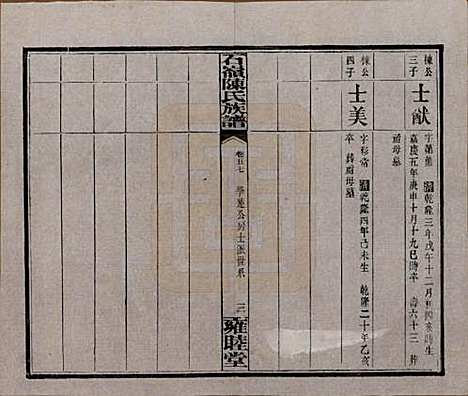 棟公
三子
士猷
字
清乾隆三年戊午十二月
時生
嘉慶五年庚申十月十九巳時卒 壽六十三 葬
祖母墓
棟公
四子
士美
字彩常 清乾隆四年己未生 乾隆二十年乙亥
卒 葬祖母墓
石嶺陳氏族譜
卷五七
公房士
世系
三
雍睦堂